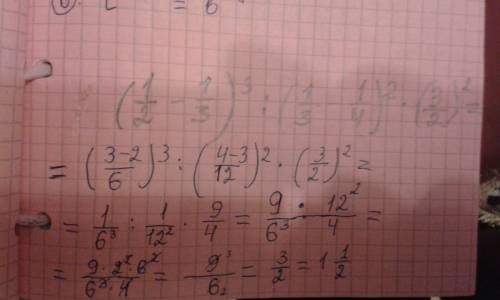 (1/2 - 1/3)³ : (1/3 - 1/4)² · (3/2)² =
= (3-2/6)³ : (4-3/12)² · (3/2)² =
= 1/6³ : 1/12² · 9/4 = 9 · 12²/6³ · 4 =
= 9 · 2² · 6²/6³ · 4 = 9³/6₂ = 3/2 = 1 1/2